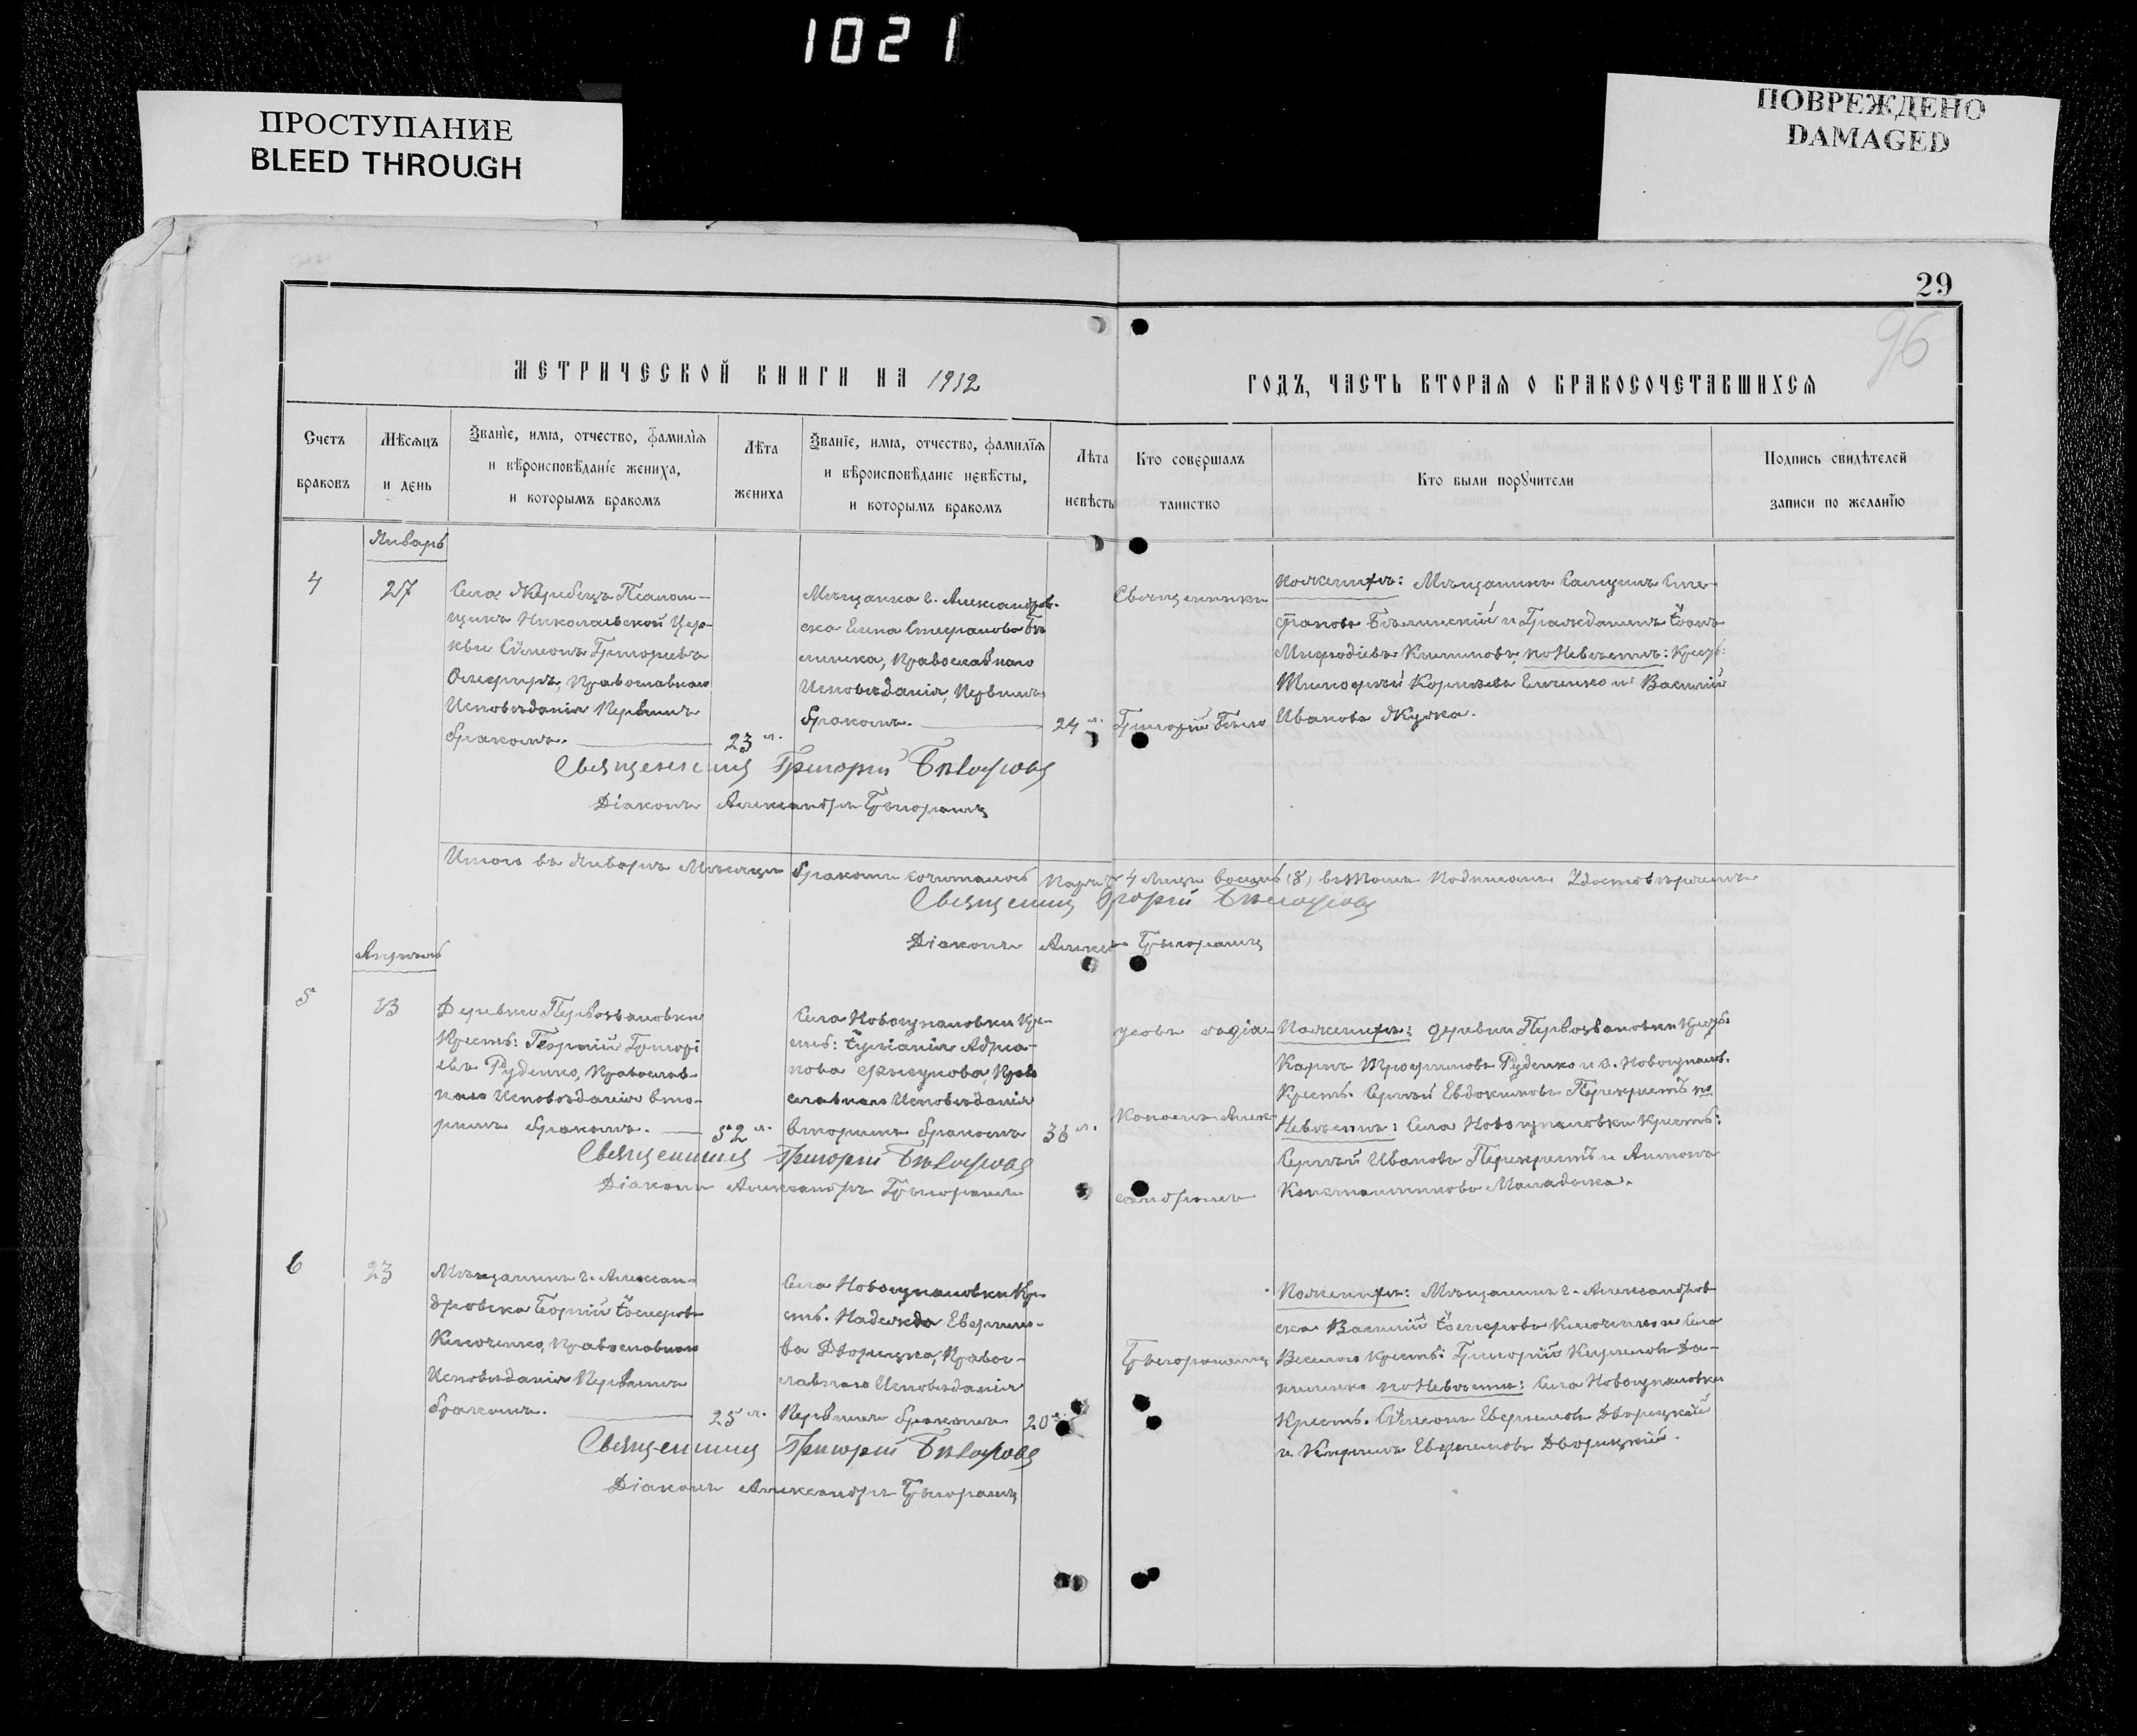 1021
ПРОСТУПАНИЕ
BLEED THROUGH
ПОВРЕЖДЕНО
DAMAGED
29
96
МЕТРИЧЕСКОЙ КНИГИ НА 1912
ГОДЪ, ЧАСТЬ ВТОРАЯ О БРАКОСОЧЕТАВШИХСЯ
Счетъ
браковъ
Мѣсяцъ
и день
Званіе, имя, отчество, фамилія
и вѣроисповѣданіе жениха,
и которымъ бракомъ
Лѣта
жениха
Званіе, имя, отчество, фамилія
и вѣроисповѣданіе невѣсты,
и которымъ бракомъ
Лѣта
невѣсты
Кто совершалъ
таинство
Кто были поручители
Подпись свидѣтелей
записи по желанію
Январь
4
Села Жеребецъ Псалом-
щикъ Николаевской Цер-
кви Сѵмеонъ Григорьевъ
Православнаго
Исповѣданія Первымъ
бракомъ.
23 л.
Мѣщанка г. Александров-
ска Елена Стефанова Бѣ
линска, Православнаго
Исповѣданія, Первымъ
бракомъ.
24 л.
Священникъ
Григорій Бѣло
по женихѣ: Мѣщанинъ Сте-
фановъ Бѣлинскій и Гражданинъ
по Невѣстѣ: Крест:
Тимофѣй Корнѣевъ и Василій
Ивановъ
Священникъ Григорій Бѣлоусовъ
Діаконъ Александръ
Итого въ Январѣ Мѣсяцѣ бракомъ сочеталось паръ 4 Лицъ восемь (8) въ томъ подписомъ Удостовѣряемъ
Священникъ Григорій Бѣлоусовъ
Діаконъ
Апрѣль
5
Деревни Первозвановки
Крест: Георгій Григорі
евъ Руденко, Православ-
наго Исповѣданія вто-
рымъ бракомъ.
52 л.
Села Новогупаловки Кре-
ст: Адріа-
нова Право
славнаго Исповѣданія
вторымъ бракомъ
36 л.
усовъ съ діа-
кономъ Алек-
сандромъ
По женихѣ: деревни Первозвановки Крест:
Карпъ Трофимовъ Руденко и с. Новогупалов.
Крест. Сергѣй Евдокимовъ Перехрестъ по
Невѣстѣ: Села Новогупаловки Крест:
Сергѣй Ивановъ Перехрестъ и
Константиновъ
Священникъ Григорій Бѣлоусовъ
Діаконъ Александръ
6
23
Мѣщанинъ г. Алексан-
дровска Георгій
Православнаго
Исповѣданія Первымъ
бракомъ.
25 л.
Села Новогупаловки Кре
ст. Надежда Ефремо-
ва Дворецка, Правос-
лавнаго Исповѣданія
Первымъ бракомъ
20 л.
По женихѣ: Мѣщанинъ г. Александров
ска Василій и Села
Веселаго Крест: Григорій Кириловъ Да-
ниленко по Невѣстѣ: Села Новогупаловки
Крест. Сѵмеонъ Ефремовъ Дворецкій
и Кириллъ Ефремовъ Дворецкій.
Священникъ Григорій Бѣлоусовъ
Діаконъ Александръ